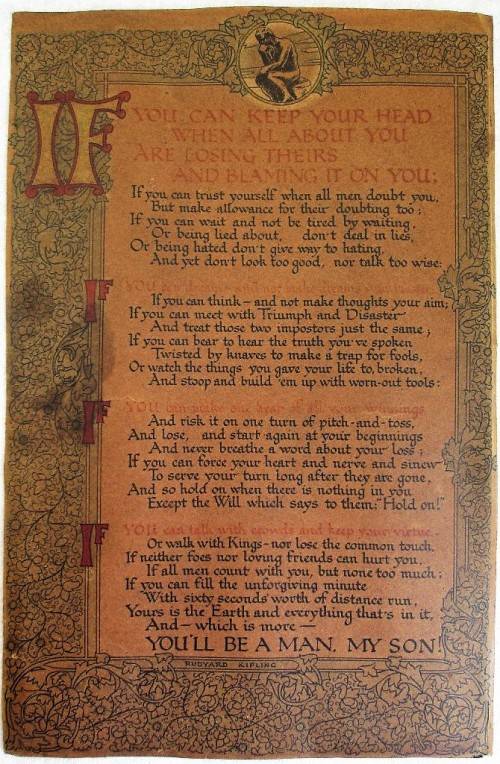 IF YOU CAN KEEP YOUR HEAD
WHEN ALL ABOUT YOU
ARE LOSING THEIRS
AND BLAMING IT ON YOU;
If you can trust yourself when all men doubt you,
But make allowance for their doubting too;
If you can wait and not be tired by waiting,
Or being lied about, don't deal in lies,
Or being hated don't give way to hating,
And yet don't look too good, nor talk too wise:
IF YOU can dream - and not make dreams your master;
If you can think - and not make thoughts your aim;
If you can meet with Triumph and Disaster
And treat those two impostors just the same;
If you can bear to hear the truth you've spoken
Twisted by knaves to make a trap for fools,
Or watch the things you gave your life to, broken,
And stoop and build 'em up with worn-out tools:
IF YOU can make one heap of all your winnings
And risk it on one turn of pitch-and-toss,
And lose, and start again at your beginnings
And never breathe a word about your loss;
If you can force your heart and nerve and sinew
To serve your turn long after they are gone,
And so hold on when there is nothing in you
Except the Will which says to them: "Hold on!"
IF YOU can talk with crowds and keep your virtue,
Or walk with Kings - nor lose the common touch,
If neither foes nor loving friends can hurt you,
If all men count with you, but none too much;
If you can fill the unforgiving minute
With sixty seconds' worth of distance run,
Yours is the Earth and everything that's in it,
And - which is more -
YOU'LL BE A MAN, MY SON!
RUDYARD KIPLING